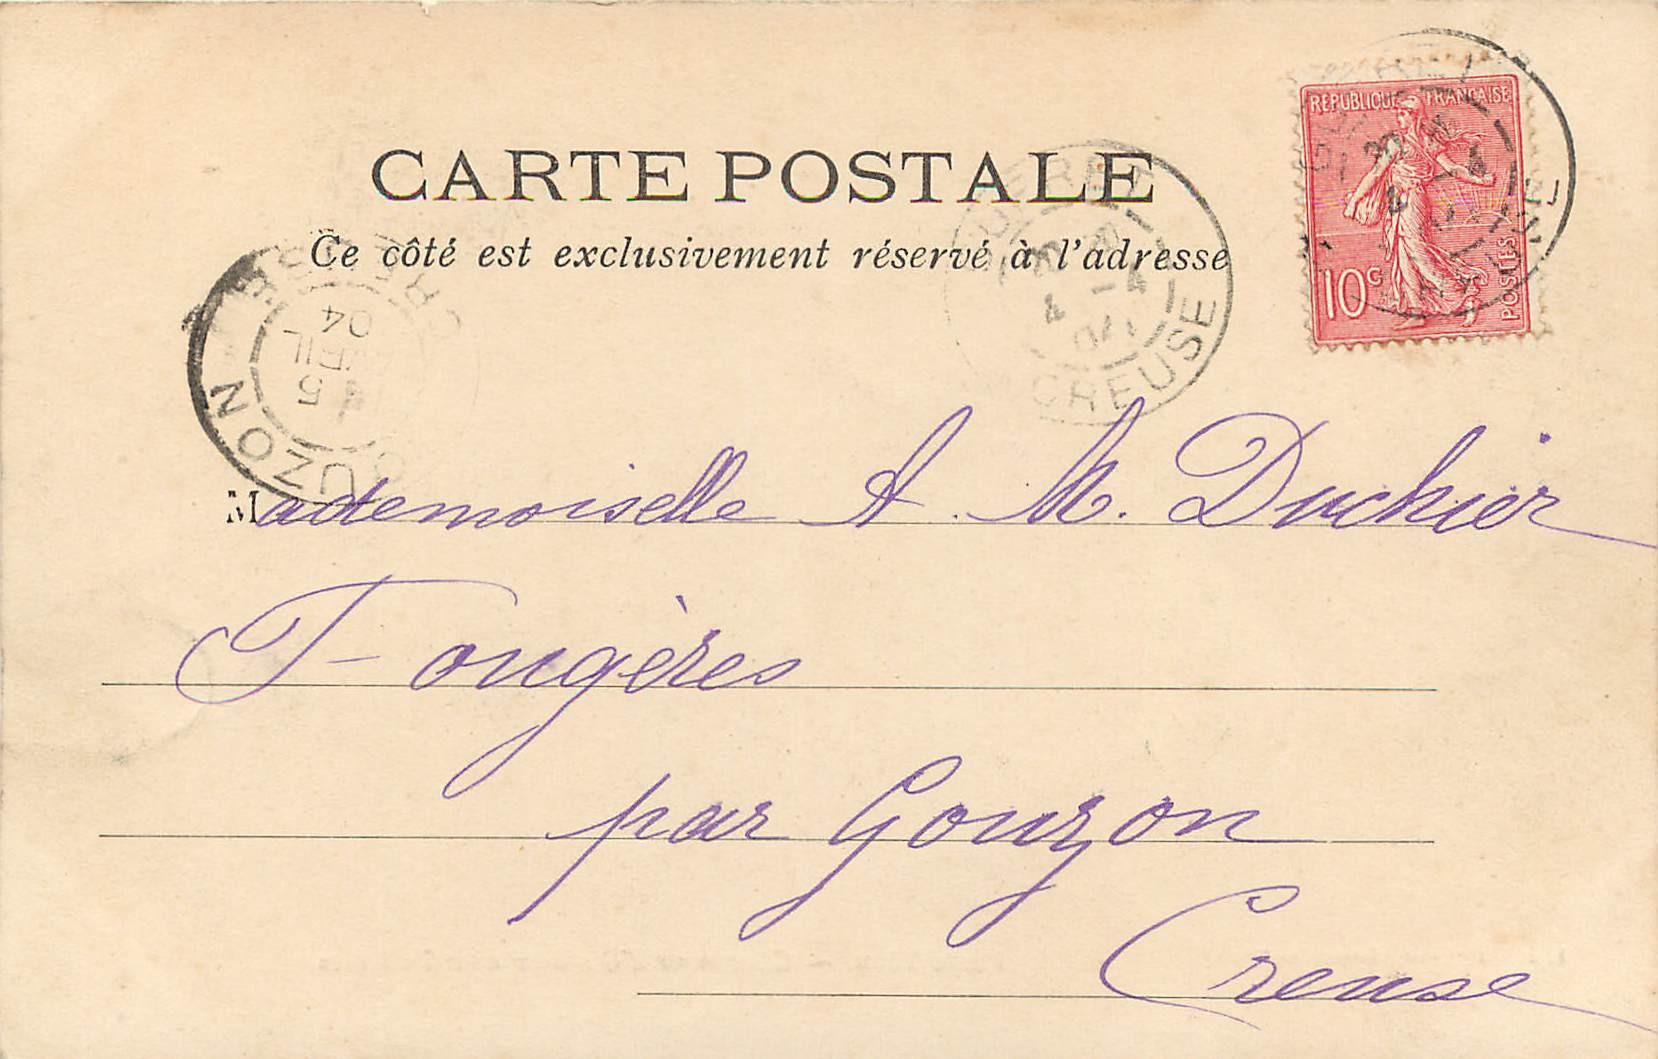 CARTE POSTALE
Ce côté est exclusivement réservé à l'adresse
RÉPUBLIQUE FRANÇAISE
10c
POSTES
CREUSE
5
04
Mademoiselle A. M. Duchier
Fougères
par Gouzon
Creuse